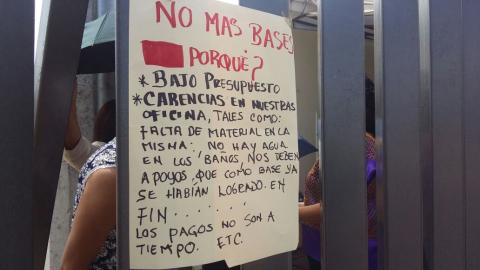 NO MAS BASES
PORQUÈ?
*BAJO PRESUPUESTO
*CARENCIAS EN NUESTRAS
OFICINA, TALES COMO:
FALTA DE MATERIAL EN LA
MISMA: NO HAY AGUA
EN LOS BAÑOS, NOS DEBEN
APOYOS, QUE COMO BASE YA
SE HABÍAN LOGRADO. EN
FIN.......
LOS PAGOS NO SON A
TIEMPO. ETC.